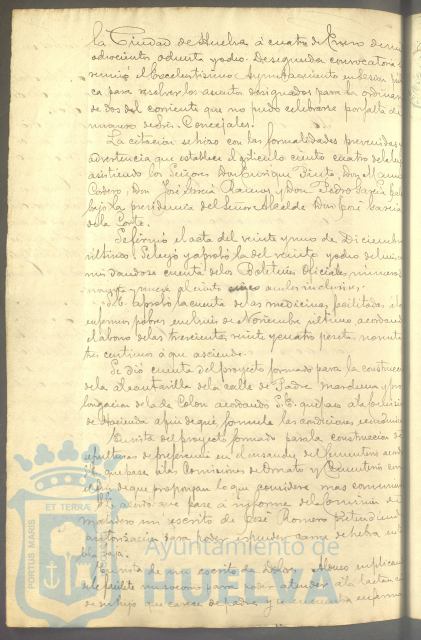 la Ciudad de Huelva á cuatro de Enero de mil
ochocientos ochenta y ocho. De segunda convocatoria se
reunió el Excelentísimo Ayuntamiento en sesion
ca para resolver los asuntos designados para la ordinaria
de dos del corriente que no pudo celebrarse por falta de
número de Sres. Concejales.
La citacion se hizo con las formalidades prevenidas
advertencia que establece el artículo ciento cuatro de la
asistiendo los Señores Don Enrique Don Manuel
Don José García Ramos y Don Pedro García
bajo la presidencia del Señor Alcalde Don José García
de la Corte.
Se firmó el acta del veinte y uno de Diciembre
último. Se leyó y aprobó la del veinte y ocho del mismo
dandose cuenta de los Boletines Oficiales números
y nueve al ciento cinco ambos inclusives.
S.E. aprobó la cuenta de las medicinas facilitadas á los
enfermos pobres en el mes de Noviembre último, acordando
el abono de las trescientas veinte y cuatro pesetas noventa
centimos á que asciende.
Se dió cuenta del proyecto formado para la construccion
de la alcantarilla de la calle de Padre Marchena y
de la de Colon acordando S.E. que pase á la Comision
de Hacienda á fin de que formule las condiciones
En vista del proyecto formado para la construccion de
sepulturas de preferencia en el ensanche del Cementerio
que pase á las Comisiones de Ornato y Cementerio con
el fin de que propongan lo que consideren mas conveniente
acordó que pase á informe del
matadero un escrito de José Romero
autorizacion para poder espender carne de hebra en
En vista de un escrito de Dolores Alonso suplicando
se le facilite un socorro para poder atender á la lactancia
de su hijo que carece de padre y se encuentra enferma
PORTUS MARIS
ET TERRÆ
Ayuntamiento de
HUELVA